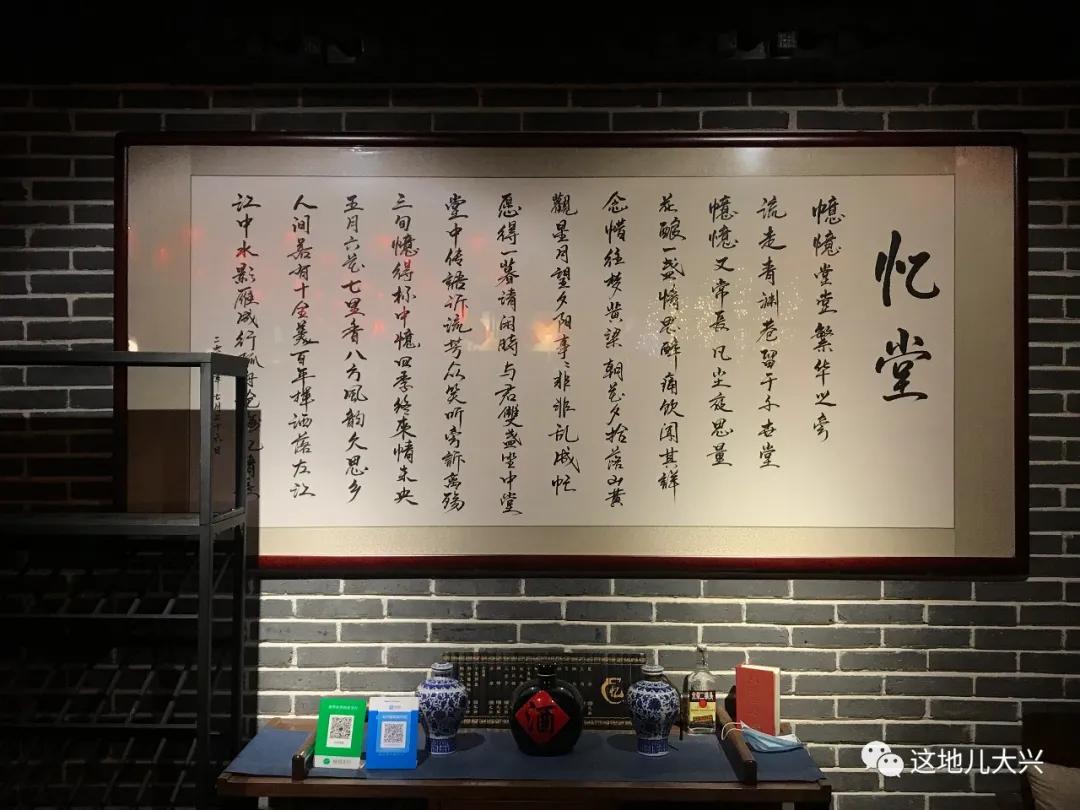 忆堂
憶憶堂堂繁华之旁
流走青渊卷留于千堂
憶憶又常長凡尘思量
花酿一盏情思醉痛饮闻其詳
念惜往梦黄梁朝花夕拾落山黄
觀星月望夕阳事〻非非乱成忙
愿得一暮请闲時与君雙盏坐中堂
堂中传語诉流芳众笑听旁訴离殇
三旬憶得杯中憶四季终来情未央
五月六花七里香八方風韵久思乡
人间若有十全美百年挥洒落左江
江中水影雁成行
七月二十六日
酒
忆
这地儿大兴